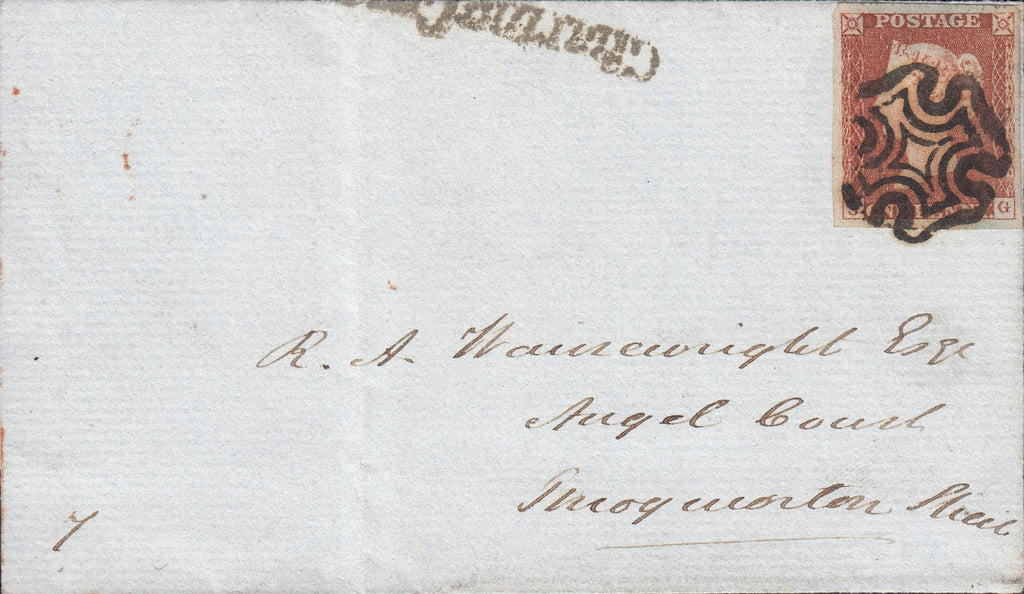 POSTAGE
G
R. A. Wainewright Esqr
Angel Court
Throgmorton Street
7